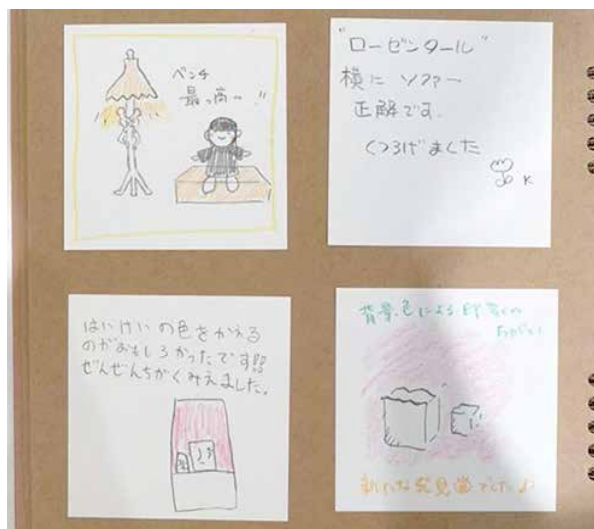 ベンチ
最っ高〜!!
"ローゼンタール"
横に ソファー
正解です.
くつろげました
K
はいけいの色をかえる
のがおもしろかったです!!
ぜんぜんちがくみえました。
背景色による印象の
ちがい
新たな発見でした♪